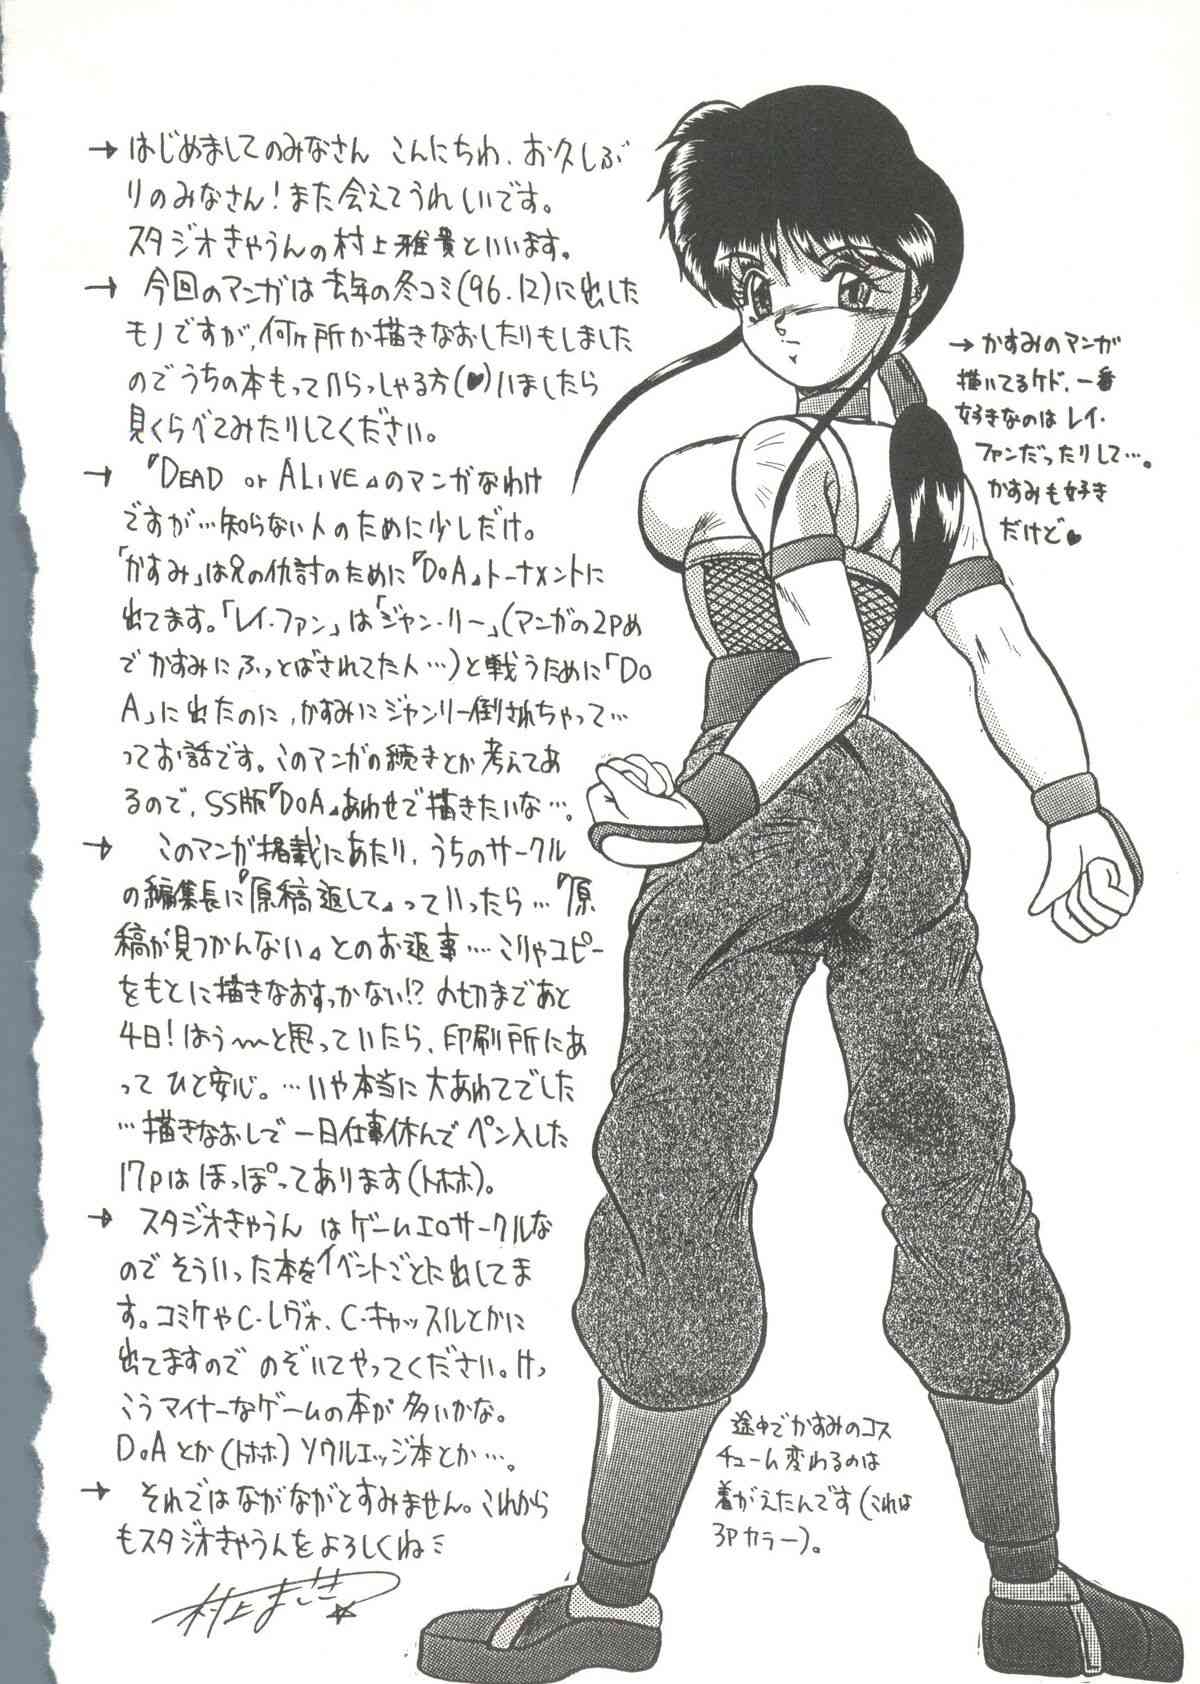 →はじめましてのみなさん こんにちわ、お久しぶ
りのみなさん！また会えてうれしいです。
スタジオきゃうんの村上雅貴といいます。
→ 今回のマンガは去年の冬コミ(96.12)に出した
モノですが、何ヶ所か描きなおしたりもしました
のでうちの本もっていらっしゃる方(♥)いましたら
見くらべてみたりしてください。
→ 『DEAD or ALIVE』のマンガなわけ
ですが…知らない人のために少しだけ。
「かすみ」は兄の仇討のために『DoA』トーナメントに
出てます。「レイ・ファン」は「ジャン・リー」(マンガの2Pめ
でかすみにふっとばされてた人…)と戦うために「Do
A」に出たのに、かすみにジャンリー倒されちゃって…
ってお話です。このマンガの続きとか考えてあ
るので、SS版『DoA』あわせで描きたいな…。
→ このマンガ掲載にあたり、うちのサークル
の編集長に『原稿返して』っていったら…『原
稿が見つかんない』とのお返事…こりゃコピー
をもとに描きなおすっかない!? 〆切まであと
4日！はう〜と思っていたら、印刷所にあ
ってひと安心。…いや本当に大あわてでした
…描きなおしで一日仕事休んでペン入した
17pはほっぽってあります(トホホ)。
→ スタジオきゃうん はゲームエロサークルな
のでそういった本をイベントごとに出してま
す。コミケやC・レヴォ、C・キャッスルとかに
出てますので のぞいてやってください。けっ
こうマイナーなゲームの本が多いかな。
DoAとか(トホホ)ソウルエッジ本とか…。
→ それではながながとすみません。これから
もスタジオきゃうんをよろしくね
村上まさき☆
→かすみのマンガ
描いてるケド、一番
好きなのはレイ・
ファンだったりして…。
かすみも好き
だけど♥
途中でかすみのコス
チューム変わるのは
着がえたんです(これは
3Pカラー)。